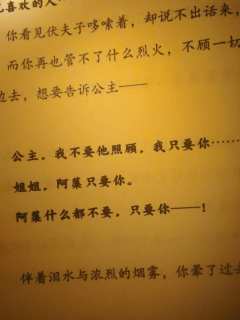 喜欢的人
你看见伏夫子哆嗦着，却说不出话来，
而你再也管不了什么烈火，不顾一切
边去，想要告诉公主——
公主，我不要他照顾，我只要你……
姐姐，阿藻只要你。
阿藻什么都不要，只要你——！
伴着泪水与浓烈的烟雾，你晕了过去